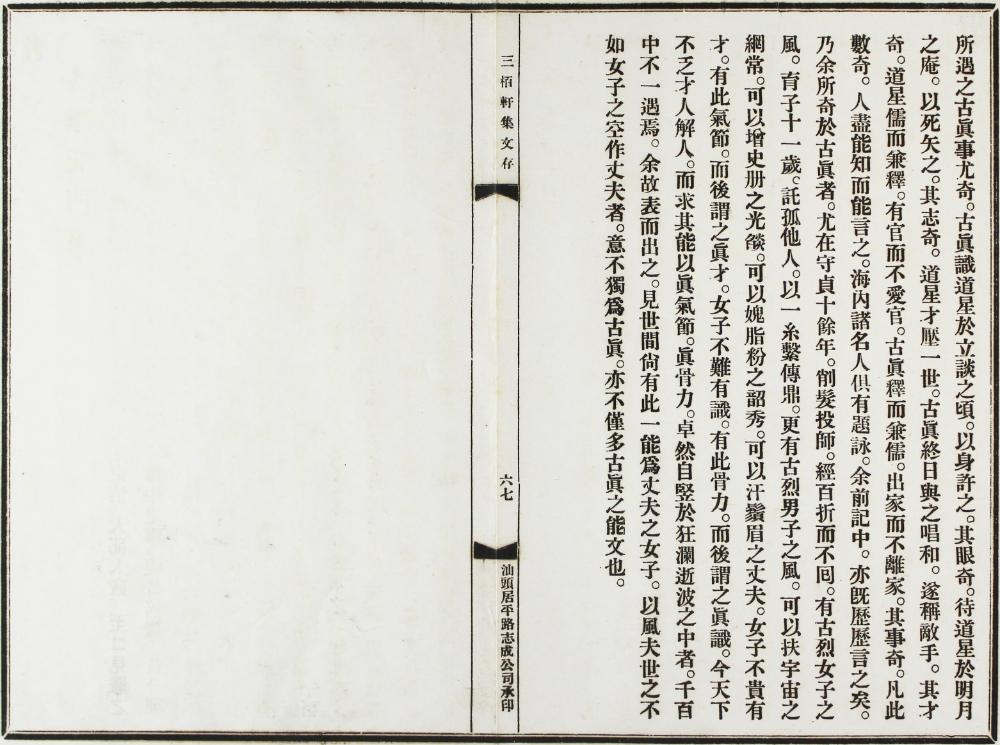 所遇之古眞事尤奇。古眞識道星於立談之頃。以身許之。其眼奇。待道星於明月
之庵。以死矢之。其志奇。道星才壓一世。古眞終日與之唱和。遂稱敵手。其才
奇。道星儒而兼釋。有官而不愛官。古眞釋而兼儒。出家而不離家。其事奇。凡此
數奇。人盡能知而能言之。海內諸名人俱有題詠。余前記中。亦旣歷歷言之矣。
乃余所奇於古眞者。尤在守貞十餘年。削髮投師。經百折而不囘。有古烈女子之
風。育子十一歲。託孤他人。以一糸繫傳鼎。更有古烈男子之風。可以扶宇宙之
綱常。可以增史册之光燄。可以媿脂粉之韶秀。可以汗鬚眉之丈夫。女子不貴有
才。有此氣節。而後謂之眞才。女子不難有識。有此骨力。而後謂之眞識。今天下
不乏才人解人。而求其能以眞氣節。眞骨力。卓然自竪於狂瀾逝波之中者。千百
中不一遇焉。余故表而出之。見世間尙有此一能爲丈夫之女子。以風夫世之不
如女子之空作丈夫者。意不獨爲古眞。亦不僅多古眞之能文也。
三栢軒集文存
六七
汕頭居平路志成公司承印